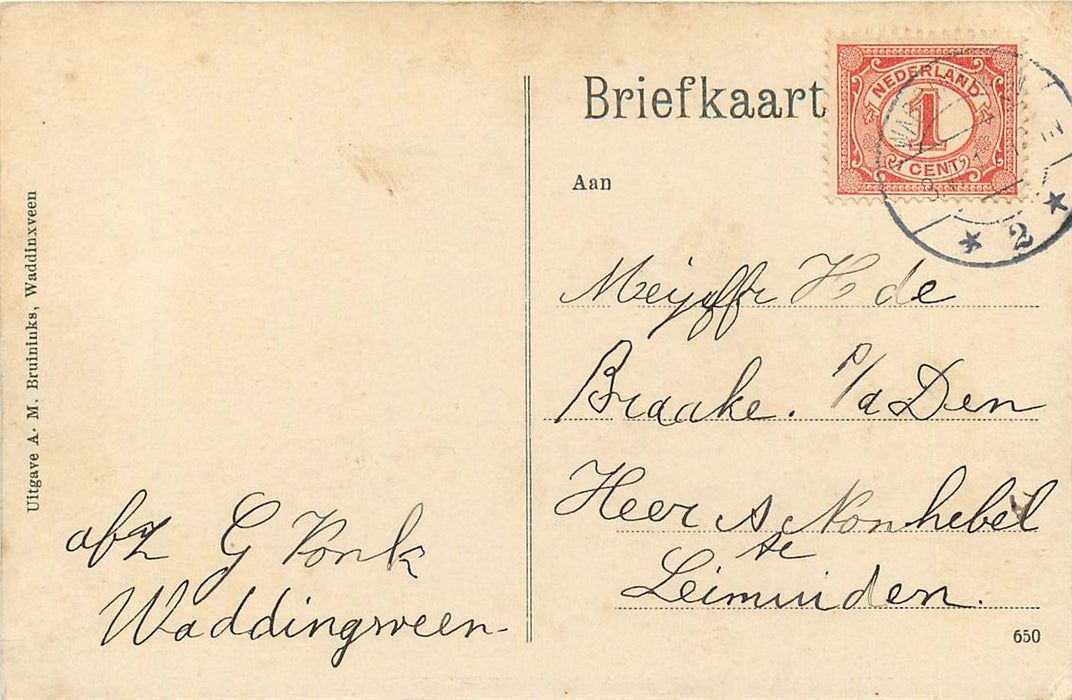 Briefkaart
NEDERLAND
1
CENT
Aan
Meijoffr H de
Braake. p/a Den
Heer A Nonhebel
te
Leimuiden.
650
abz G Vonk
Waddingsveen-
Uitgave A. M. Bruininks, Waddinxveen
2